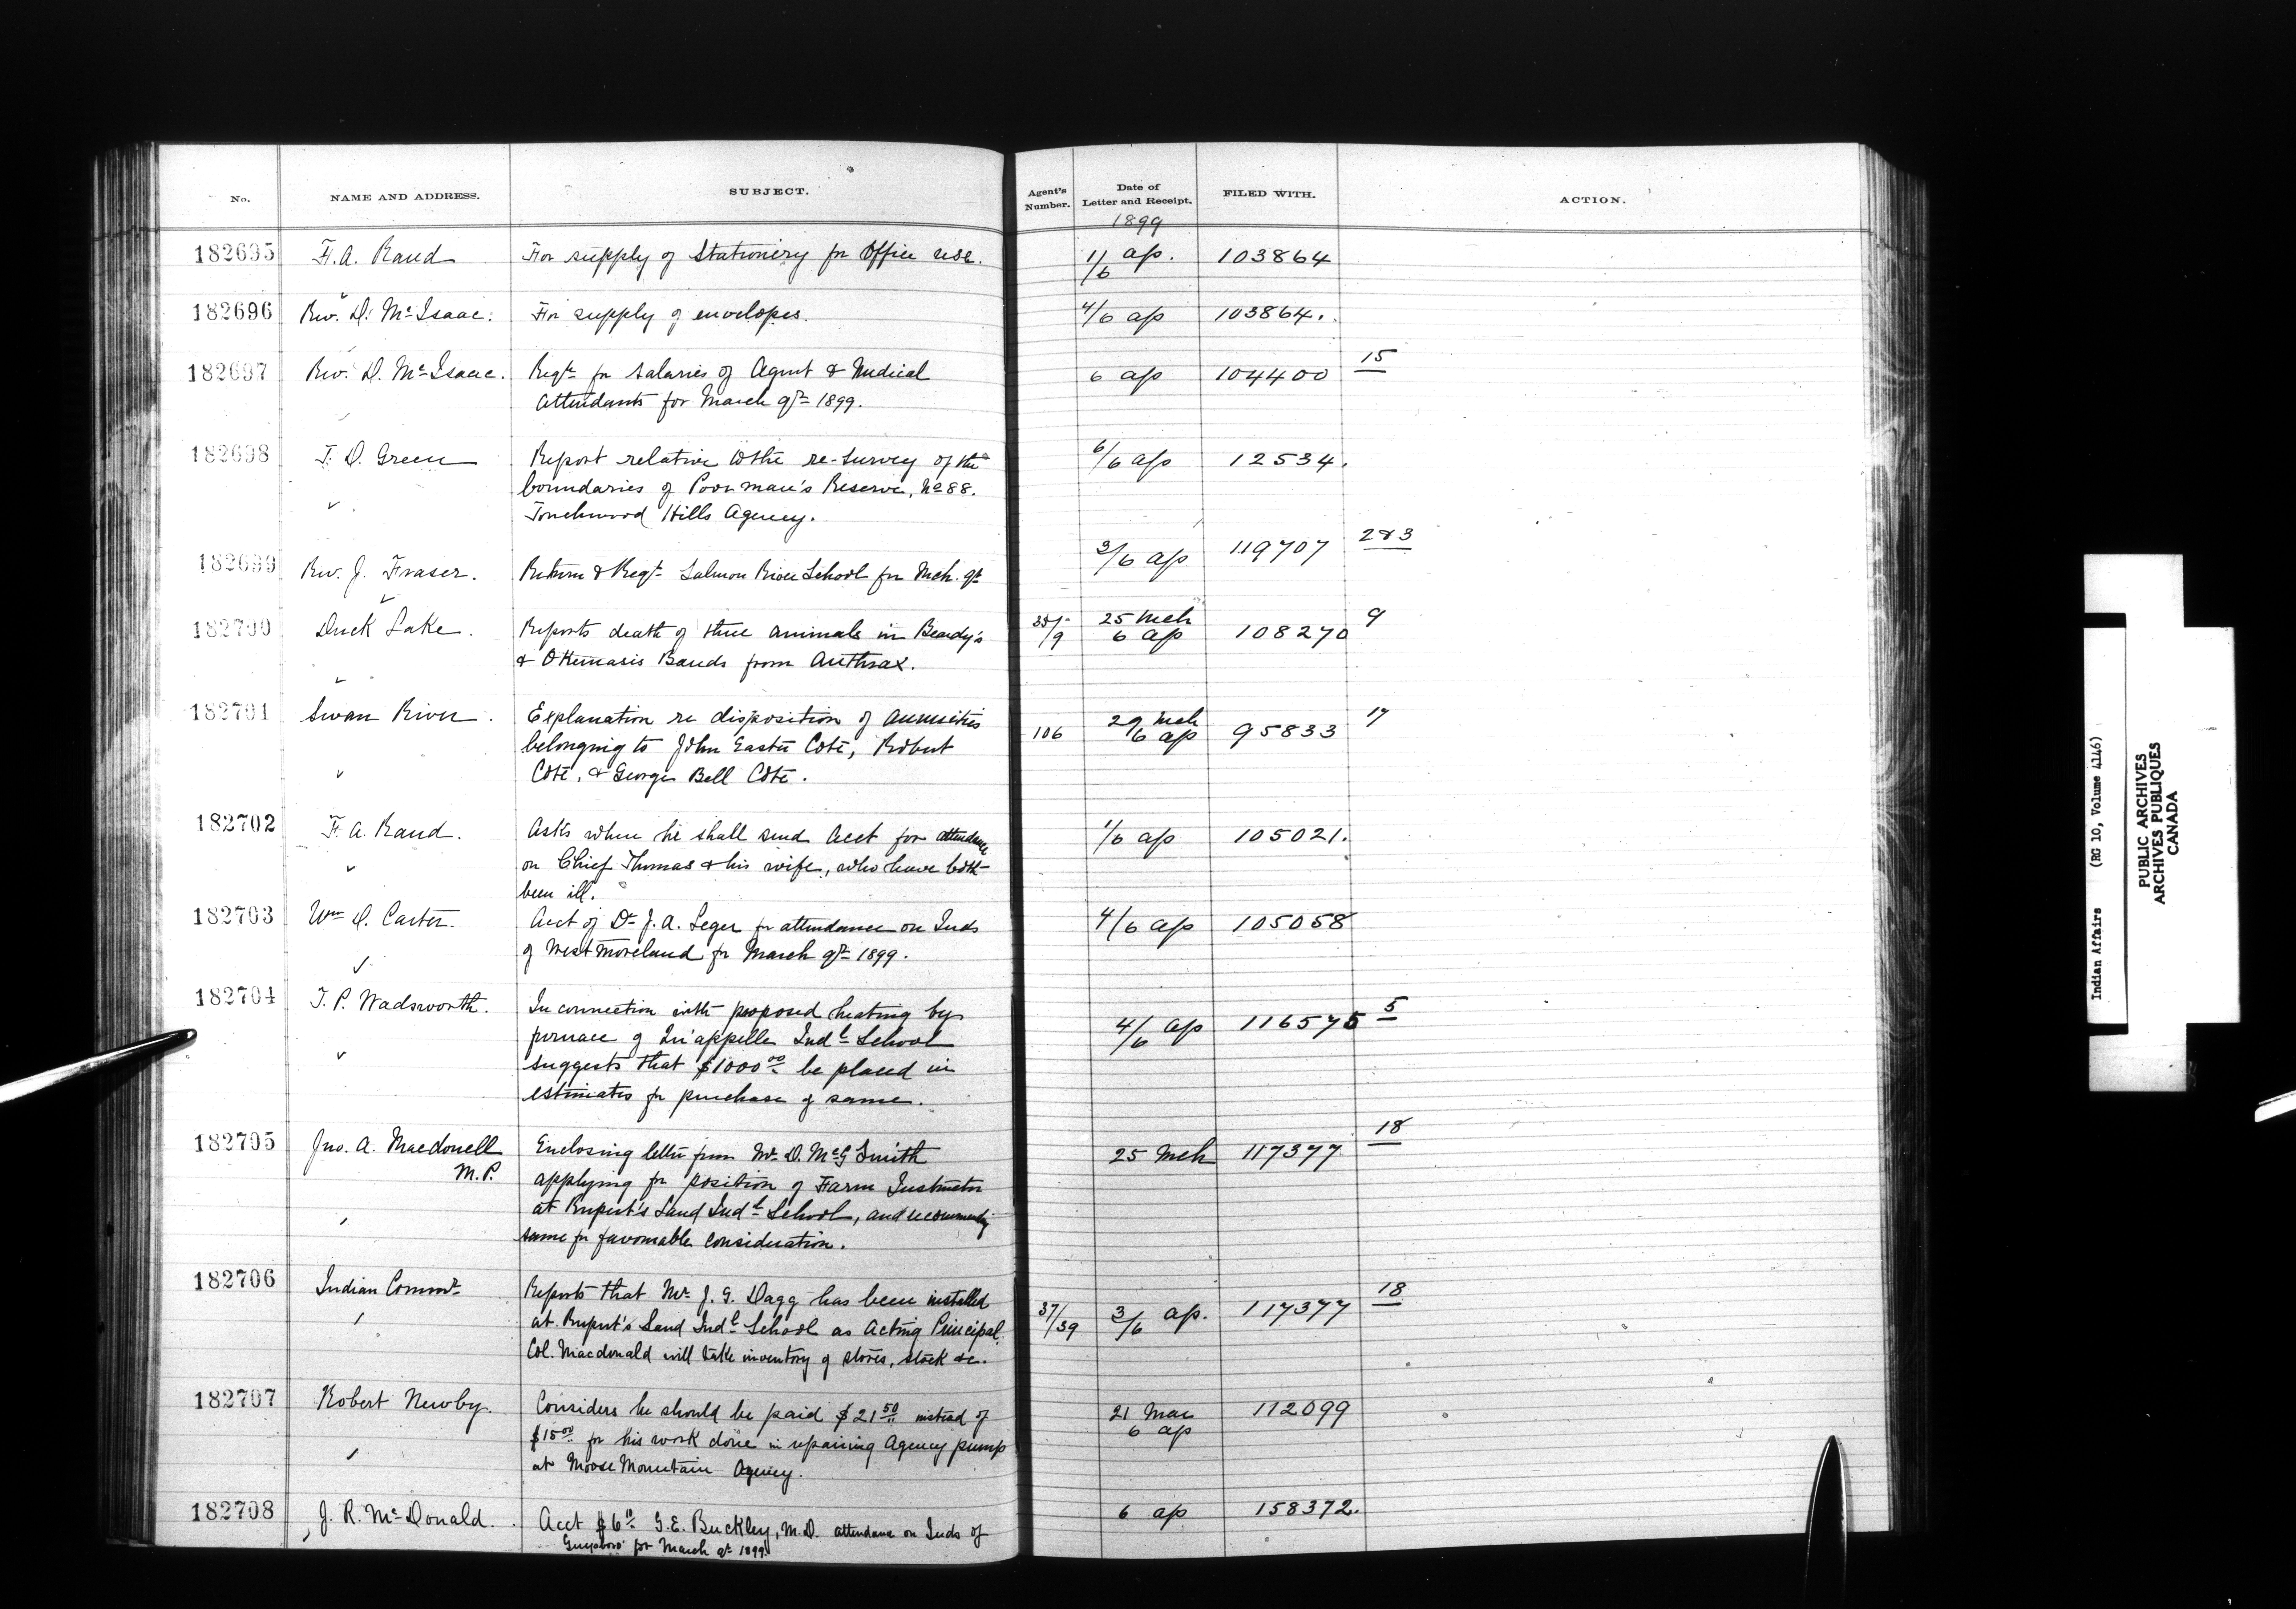 No. NAME AND ADDRESS. SUBJECT. Agent's Number. Date of Letter and Receipt. FILED WITH. ACTION.
1899
182695 F. A. Rand For supply of Stationery for Office use. 11/6 ap. 103864
182696 Rev. D. McIsaac. For supply of envelopes. 4/6 ap 103864.
182697 Rev. D. McIsaac. Reqn for salaries of Agent & Medical 6 ap 104400 15
Attendants for March qr 1899.
182698 T. D. Green Report relative to the re-survey of the 6/6 ap 12534.
boundaries of Poor man's Reserve, No 88.
Touchwood Hills Agency.
182699 Rev. J. Fraser. Return & Reqn Salmon River School for Mch. qr 3/6 ap 119707 2 & 3
182700 Duck Lake. Reports death of three animals in Beardy's 25 Mch 108270 9
& Okemasis Bands from Anthrax. 6 ap
182701 Swan River. Explanation re disposition of annuities 106 29 Mch 95833 17
belonging to John Easter Coté, Robert 6 ap
Coté, & George Bell Coté.
182702 F. A. Rand. Asks where he shall send Acct for attendance 1/6 ap 105021.
on Chief Thomas & his wife, who have both
been ill.
182703 Wm D. Carter. Acct of Dr J. A. Leger for attendance on Inds 4/6 ap 105058
of Westmoreland for March qr 1899.
182704 T. P. Wadsworth. In connection with proposed heating by 4/6 ap 116575 5
furnace of Qu'appelle Indl School
suggests that $1000 00 be placed in
estimates for purchase of same.
182705 Jno. A. Macdonell Enclosing letter from Mr D. McG Smith 25 Mch 117377 18
M.P. applying for position of Farm Instructor
at Rupert's Land Indl School, and recommending
same for favourable consideration.
182706 Indian Commr Reports that Mr J. G. Dagg has been installed 37/39 3/6 ap. 117377 18
at Rupert's Land Indl School as Acting Principal.
Col. Macdonald will take inventory of stores, stock &c.
182707 Robert Newby. Considers he should be paid $21 50 instead of 21 Mar 112099
$15 00 for his work done in repairing Agency pump 6 ap
at Moose Mountain Agency.
182708 J. R. McDonald. Acct G. E. Buckley, M.D. attendance on Inds of 6 ap 158372.
Guysboro' for March qr 1899
Indian Affairs (RG 10, Volume 4146)
PUBLIC ARCHIVES
ARCHIVES PUBLIQUES
CANADA